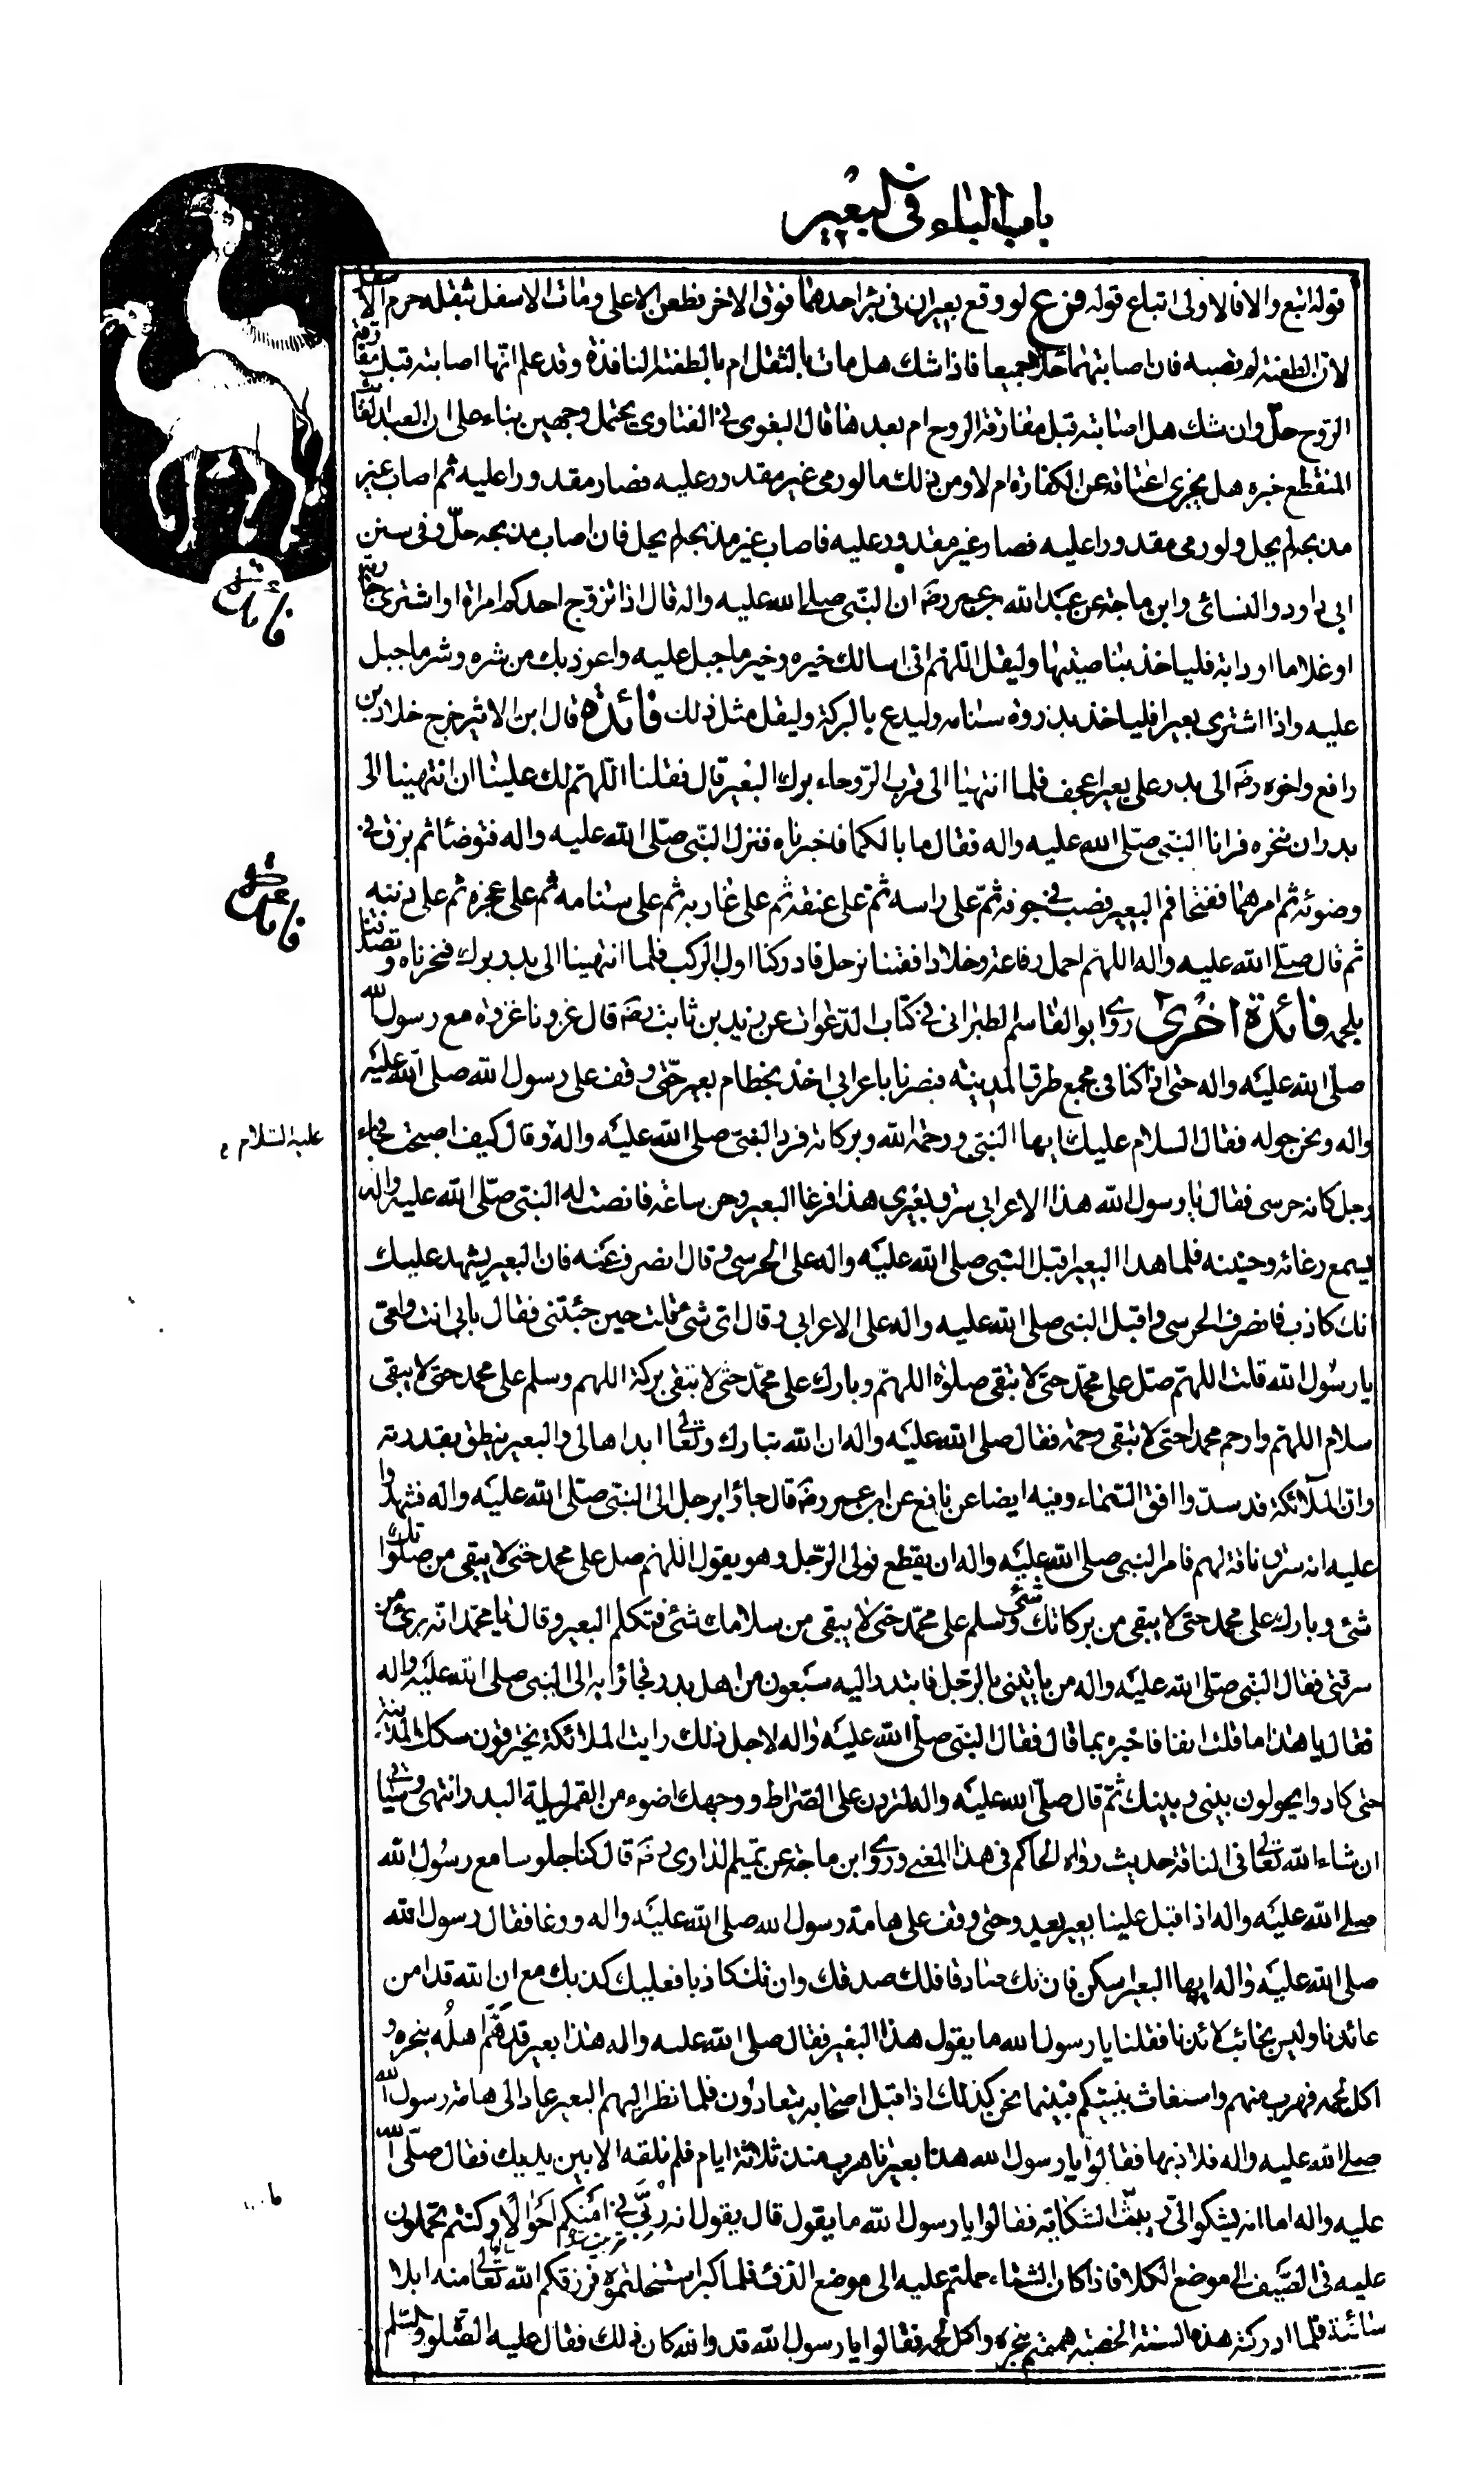 باب الباء في البعير
قوله اتبع والا فالاولى اتباع قوله فرع لو وقع بعيران في بئر احدهما فوق الاخر فطعن الاعلى ومات الاسفل بثقله حرم الاسفل
لان الطعنة لم تصبه فان اصابتهما حلا جميعا فاذا شك هل مات بالثقل ام بالطعنة النافذة وقد علم انها اصابته قبل مفارقة
الروح حل وان شك هل اصابته قبل مفارقة الروح ام بعدها قال البغوى في الفتاوى يحتمل وجهين بناء على ان العبد الغائب
المنقطع خبره هل يجزى اعتاقه عن الكفارة ام لا ومن ذلك ما لو رمى غير مقدور عليه فصار مقدورا عليه ثم اصاب غير
مذبحه لم يحل ولو رمى مقدورا عليه فصار غير مقدور عليه فاصاب غير مذبحه لم يحل فان اصاب مذبحه حل وفى سنن
ابى داود والنسائى وابن ماجة عن عبد الله بن عمر رضه ان النبى صلى الله عليه واله قال اذا تزوج احدكم امراة او اشترى جارية
او غلاما او دابة فلياخذ بناصيتها وليقل اللهم انى اسالك خيره وخير ما جبل عليه واعوذ بك من شره وشر ما جبل
عليه واذا اشترى بعيرا فلياخذ بذروة سنامه وليدع بالبركة وليقل مثل ذلك فائدة قال ابن الاثير خرج خلاد بن
رافع واخوه رضه الى بدر على بعير اعجف فلما انتهيا الى قرب الروحاء برك البعير قال فقلنا اللهم لك علينا ان انتهينا الى
بدر ان ننحره فرانا النبى صلى الله عليه واله فقال ما بالكما فاخبرناه فنزل النبى صلى الله عليه واله فتوضا ثم بزق في
وضوئه ثم امرهما ففتحا فم البعير فصب في جوفه ثم على راسه ثم على عنقه ثم على غاربه ثم على سنامه ثم على عجزه ثم على ذنبه
ثم قال صلى الله عليه واله اللهم احمل رفاعة وخلادا فقمنا نرحل فادركنا اول الركب فلما انتهينا الى بدر برك فنحرناه وتصدقنا
بلحمه فائدة اخرى روى ابو القاسم الطبرانى في كتاب الدعوات عن زيد بن ثابت رضه قال غزونا غزوة مع رسول الله
صلى الله عليه واله حتى اذا كنا في مجمع طرق المدينة فبصرنا باعرابى اخذ بخطام بعير حتى وقف على رسول الله صلى الله عليه
واله ونحن حوله فقال السلام عليك ايها النبى ورحمة الله وبركاته فرد النبى صلى الله عليه واله وقال كيف اصبحت فجاء
رجل كانه حرسى فقال يا رسول الله هذا الاعرابى سرق بعيرى هذا فرغا البعير وحن ساعة فانصت له النبى صلى الله عليه واله
يسمع رغائه وحنينه فلما هدا البعير اقبل النبى صلى الله عليه واله على الحرسى وقال انصرف عنه فان البعير يشهد عليك
انك كاذب فانصرف الحرسى واقبل النبى صلى الله عليه واله على الاعرابى وقال اى شئ قلت حين جئتنى فقال بابى انت وامى
يا رسول الله قلت اللهم صل على محمد حتى لا تبقى صلوة اللهم وبارك على محمد حتى لا تبقى بركة اللهم وسلم على محمد حتى لا يبقى
سلام اللهم وارحم محمدا حتى لا تبقى رحمة فقال صلى الله عليه واله ان الله تبارك وتعالى ابداها لى والبعير ينطق بقدرته
وان الملائكة قد سدوا افق السماء وفيه ايضا عن نافع عن ابن عمر رضه قال جاؤا برجل الى النبى صلى الله عليه واله فشهدوا
عليه انه سرق ناقة لهم فامر النبى صلى الله عليه واله ان يقطع فولى الرجل وهو يقول اللهم صل على محمد حتى لا يبقى من صلواتك
شئ وبارك على محمد حتى لا يبقى من بركاتك شئ وسلم على محمد حتى لا يبقى من سلامك شئ فتكلم البعير وقال يا محمد انه برئ من
سرقتى فقال النبى صلى الله عليه واله من ياتينى بالرجل فابتدر اليه سبعون من اهل بدر فجاؤا به الى النبى صلى الله عليه واله
فقال يا هذا ما قلت انفا فاخبره بما قال فقال النبى صلى الله عليه واله لاجل ذلك رايت الملائكة يخترقون سكك المدينة
حتى كادوا يحولون بينى وبينك ثم قال صلى الله عليه واله لتردن على الصراط ووجهك اضوء من القمر ليلة البدر انتهى وسياتى
ان شاء الله تعالى في الناقة حديث رواه الحاكم في هذا المعنى وروى ابن ماجة عن تميم الدارى رضه قال كنا جلوسا مع رسول الله
صلى الله عليه واله اذا قبل علينا بعير يعدو حتى وقف على هامة رسول الله صلى الله عليه واله ورغا فقال رسول الله
صلى الله عليه واله ايها البعير اسكن فان تك صادقا فلك صدقك وان تك كاذبا فعليك كذبك مع ان الله قد امن
عائذنا وليس بخائب لائذنا فقلنا يا رسول الله ما يقول هذا البعير فقال صلى الله عليه واله هذا بعير قد هم اهله بنحره و
اكل لحمه فهرب منهم واستغاث بنبيكم فبينما نحن كذلك اذا قبل اصحابه يتعادون فلما نظر اليهم البعير عاد الى هامة رسول الله
صلى الله عليه واله فلاذ بها فقالوا يا رسول الله هذا بعيرنا هرب منذ ثلاثة ايام فلم نلقه الا بين يديك فقال صلى الله
عليه واله اما انه يشكو الى وبثت الشكاية فقالوا يا رسول الله ما يقول قال يقول انه ربى في امنكم احوالا وكنتم تحملون
عليه فى الصيف الى موضع الكلا فاذا كان الشتاء حملتم عليه الى موضع الدفئ فلما كبر استفحلتموه فرزقكم الله تعالى منه ابلا
سائمة فلما ادركته هذه السنة الخصبة هممتم بنحره واكل لحمه فقالوا يا رسول الله قد والله كان ذلك فقال عليه الصلوة والسلام
فائدة
فائدة
عليه السلام